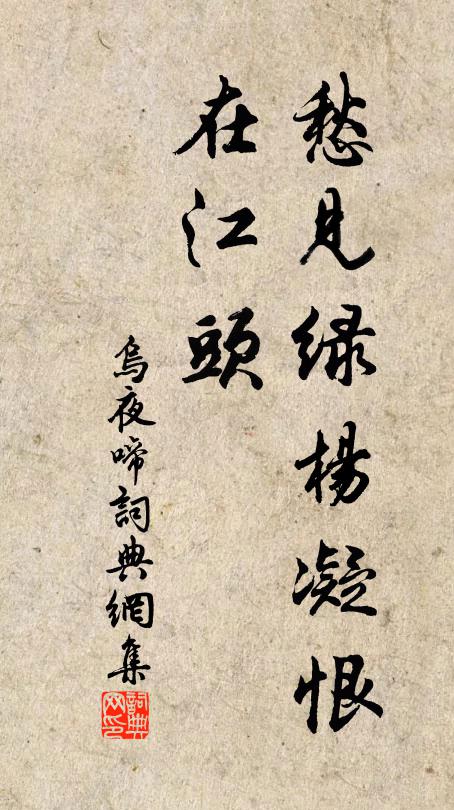 愁見緑楊凝恨
在江頭
烏夜啼詞典網集
詞典
网印